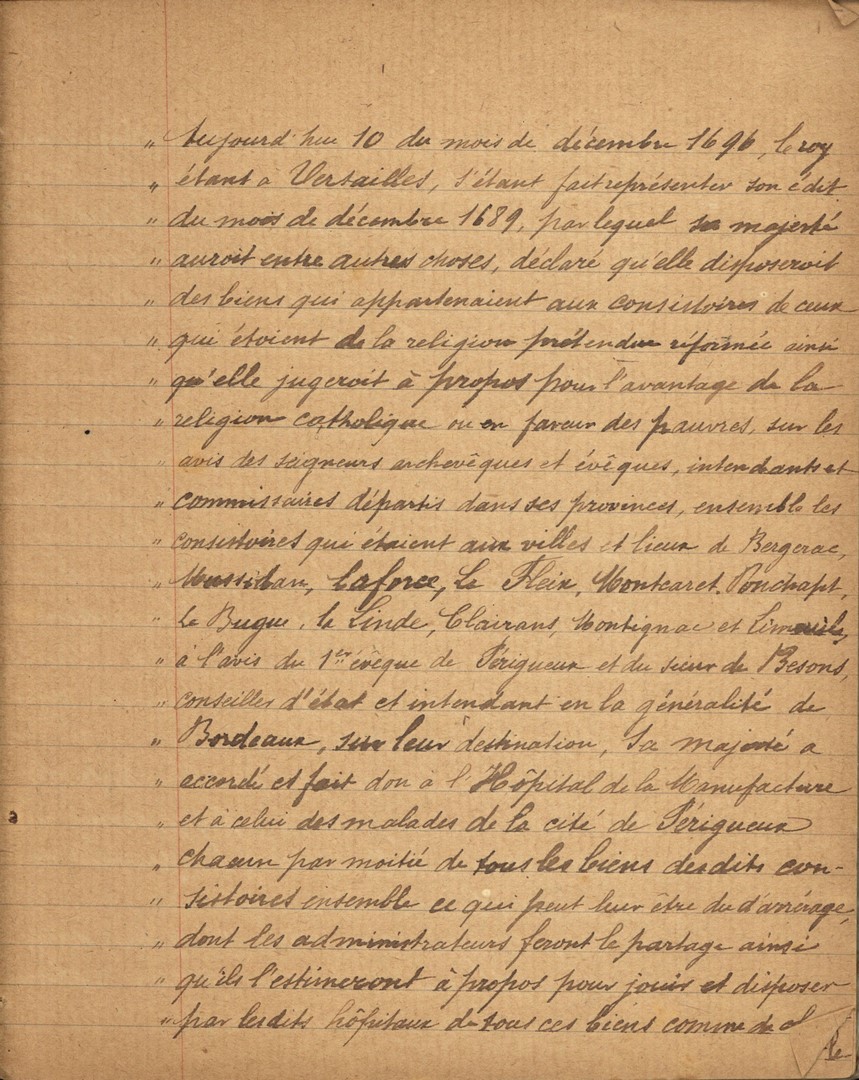 " Aujourd'hui 10 du mois de décembre 1696, le roy
" étant a Versailles, s'étant fait représenter son édit
" du mois de décembre 1689, par lequel sa majesté
" auroit entre autres choses, déclaré qu'elle disposeroit
" des biens qui appartenaient aux consistoires de ceux
" qui étoient de la religion prétendue réformée ainsi
" qu'elle jugeroit à propos pour l'avantage de la
" religion catholique ou en faveur des pauvres, sur les
" avis des seigneurs archevêques et évêques, intendants et
" commissaires départis dans ses provinces, ensemble les
" consistoires qui étaient aux villes et lieux de Bergerac,
" Mussidan, Laforce, Le Fleix, Montcaret, Ponchapt,
" Le Bugue, la Linde, Clairans, Montignac et Limeuils,
" à l'avis du 1er évêque de Périgueux et du sieur de Besons,
" conseilles d'état et intendant en la généralité de
" Bordeaux, sur leur destination, Sa majesté a
" accordé et fait don à l'Hôpital de la Manufacture
" et à celui des malades de la cité de Périgueux
" chacun par moitié de tous les biens desdits con-
" sistoires ensemble ce qui peut leur être du d'arrérage,
" dont les administrateurs feront le partage ainsi
" qu'ils l'estimeront à propos pour jouir et disposer
" par lesdits hôpitaux de tous ces biens comme de